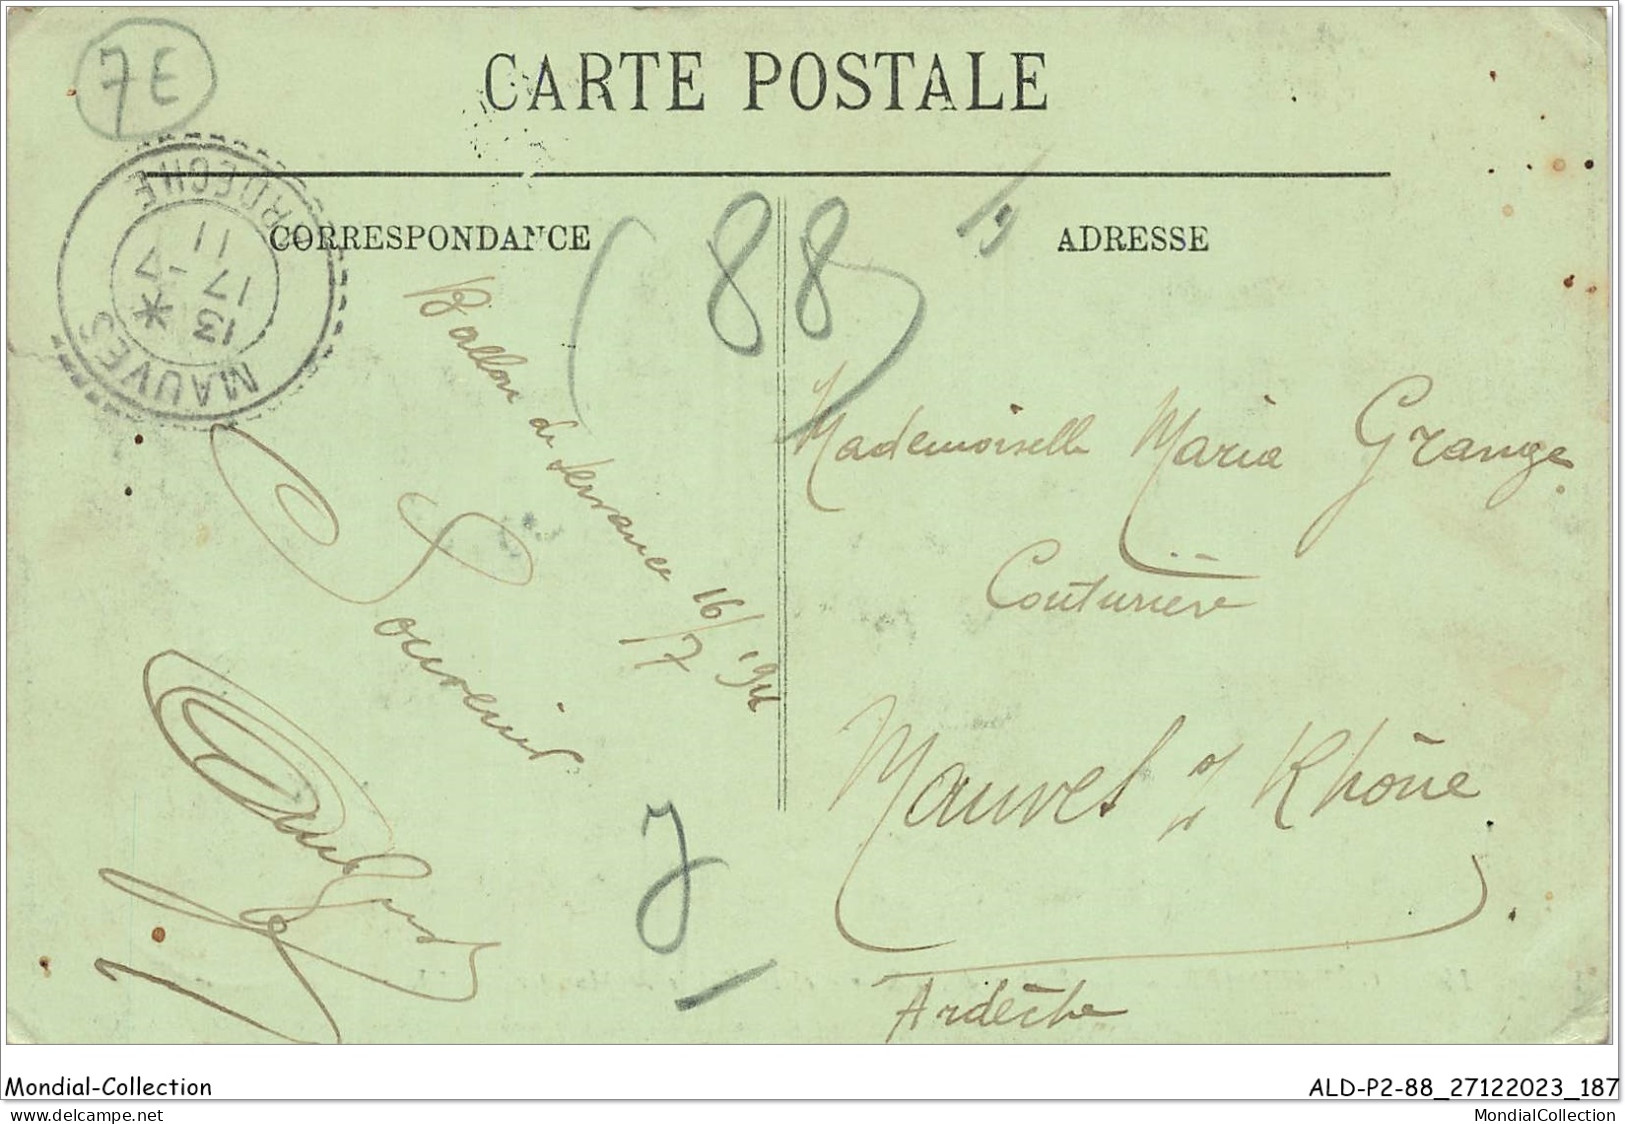 7E
CARTE POSTALE
MAUVES
ARDECHE
13 *
17 -7
11
CORRESPONDANCE
ADRESSE
(88)
Ballon de Servance 16/7 1911
Souvenir
Mademoiselle Maria Grange
Couturière
Mauves s/ Rhône
Ardèche
Mondial-Collection
ALD-P2-88_27122023_187
delcampe.net
MondialCollection